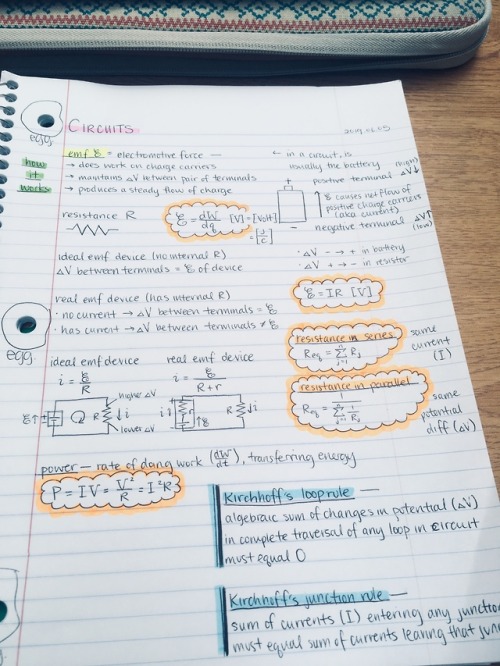 CIRCUITS
2019.06.05
egg.
emf ℰ = electromotive force —
← in a circuit, is usually the battery
how it works
→ does work on charge carriers
→ maintains ΔV between pair of terminals
→ produces a steady flow of charge
+
positive terminal ΔV↓ (high)
↑ ℰ causes net flow of
positive charge carriers
(aka current)
- negative terminal ΔV↑ (low)
resistance R
ℰ = dW/dq [V] = [volt] = [J/C]
ideal emf device (no internal R)
ΔV between terminals = ℰ of device
· ΔV - → + in battery
· ΔV + → - in resistor
ℰ = IR [V]
real emf device (has internal R)
· no current → ΔV between terminals = ℰ
· has current → ΔV between terminals ≠ ℰ
egg.
resistance in series
Req = Σ Rj
same
current
(I)
ideal emf device
i = ℰ/R
higher ΔV
R
↓i
lower ΔV
real emf device
i = ℰ/(R+r)
i↑
r
↑ℰ
R
↓i
resistance in parallel
Req = 1/Σ 1/Rj
same
potential
diff (ΔV)
power — rate of doing work (dW/dt), transferring energy
P = IV = V²/R = I²R
Kirchhoff's loop rule —
algebraic sum of changes in potential (ΔV)
in complete traversal of any loop in circuit
must equal 0
Kirchhoff's junction rule —
sum of currents (I) entering any junctio
must equal sum of currents leaving that jun